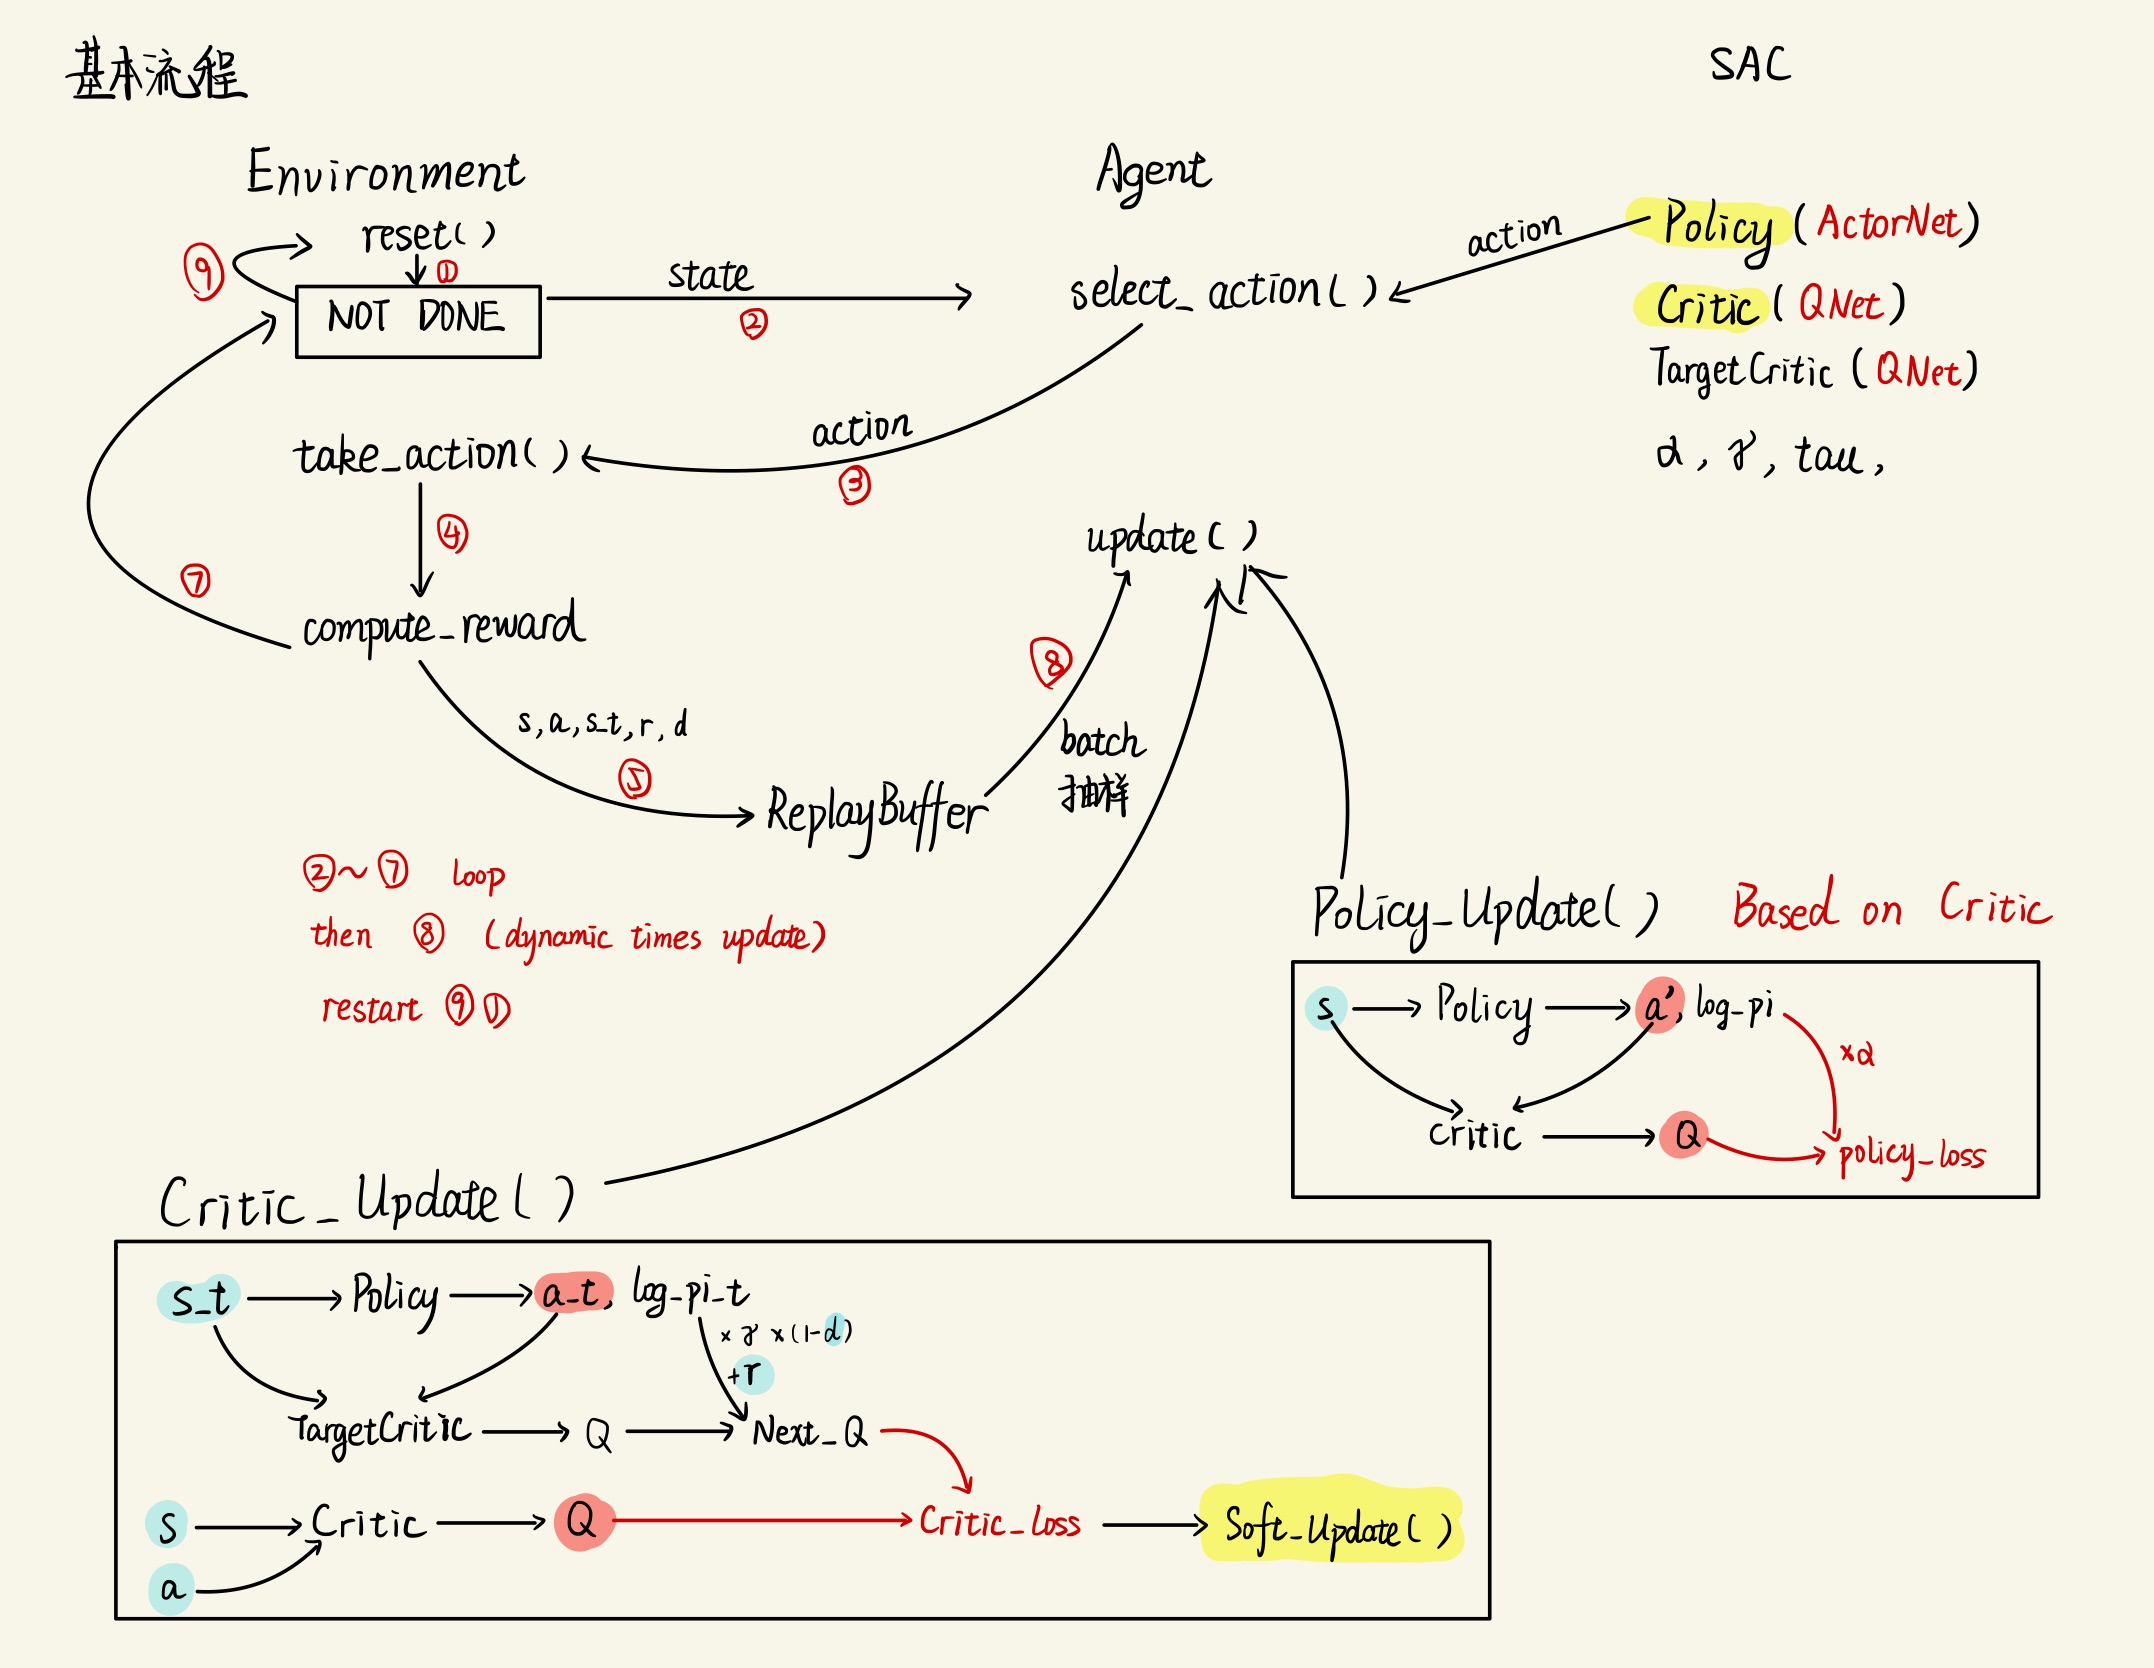 基本流程
SAC
Environment
Agent
reset()
①
⑨
NOT DONE
state
②
select_action()
action
Policy (ActorNet)
Critic (QNet)
TargetCritic (QNet)
α, γ, tau,
take_action()
action
③
④
⑦
compute_reward
update()
⑧
s, a, s_t, r, d
⑤
batch
抽样
ReplayBuffer
②~⑦ loop
then ⑧ (dynamic times update)
restart ⑨ ①
Policy_Update() Based on Critic
s Policy a', log_pi
×α
critic Q policy_loss
Critic_Update()
s_t Policy a_t, log_pi_t
× γ ×(1-d)
+r
TargetCritic Q Next_Q
s Critic Q Critic_loss Soft_Update()
a